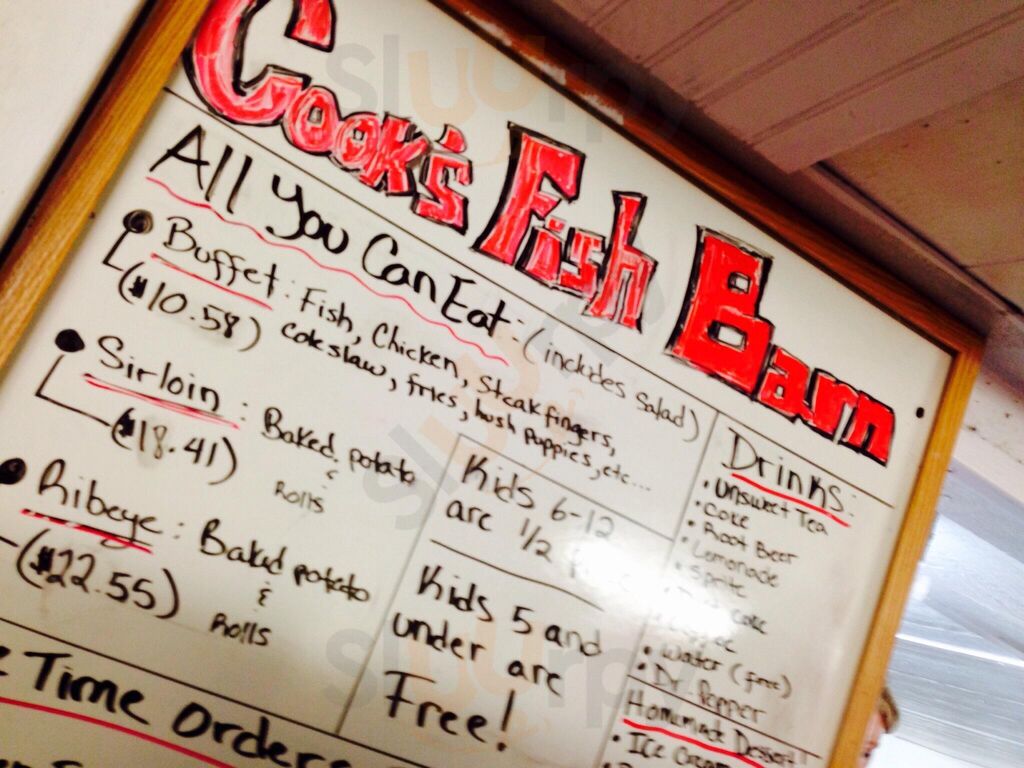 Cook's Fish Barn
All You Can Eat: (includes Salad)
• Buffet: Fish, Chicken, Steakfingers,
($10.58) Coleslaw, fries, hush puppies, etc...
• Sirloin: Baked potato
($18.41) & Rolls
• Ribeye: Baked potato
($22.55) & Rolls
Kids 6-12
are 1/2
Kids 5 and
under are
Free!
Drinks:
• Unsweet Tea
• Coke
• Root Beer
• Lemonade
• Sprite
Coke
• Water (free)
• Dr. Pepper
Homemade Dessert
• Ice Cream
Time Orders
slurpy
slurpy
slurpy